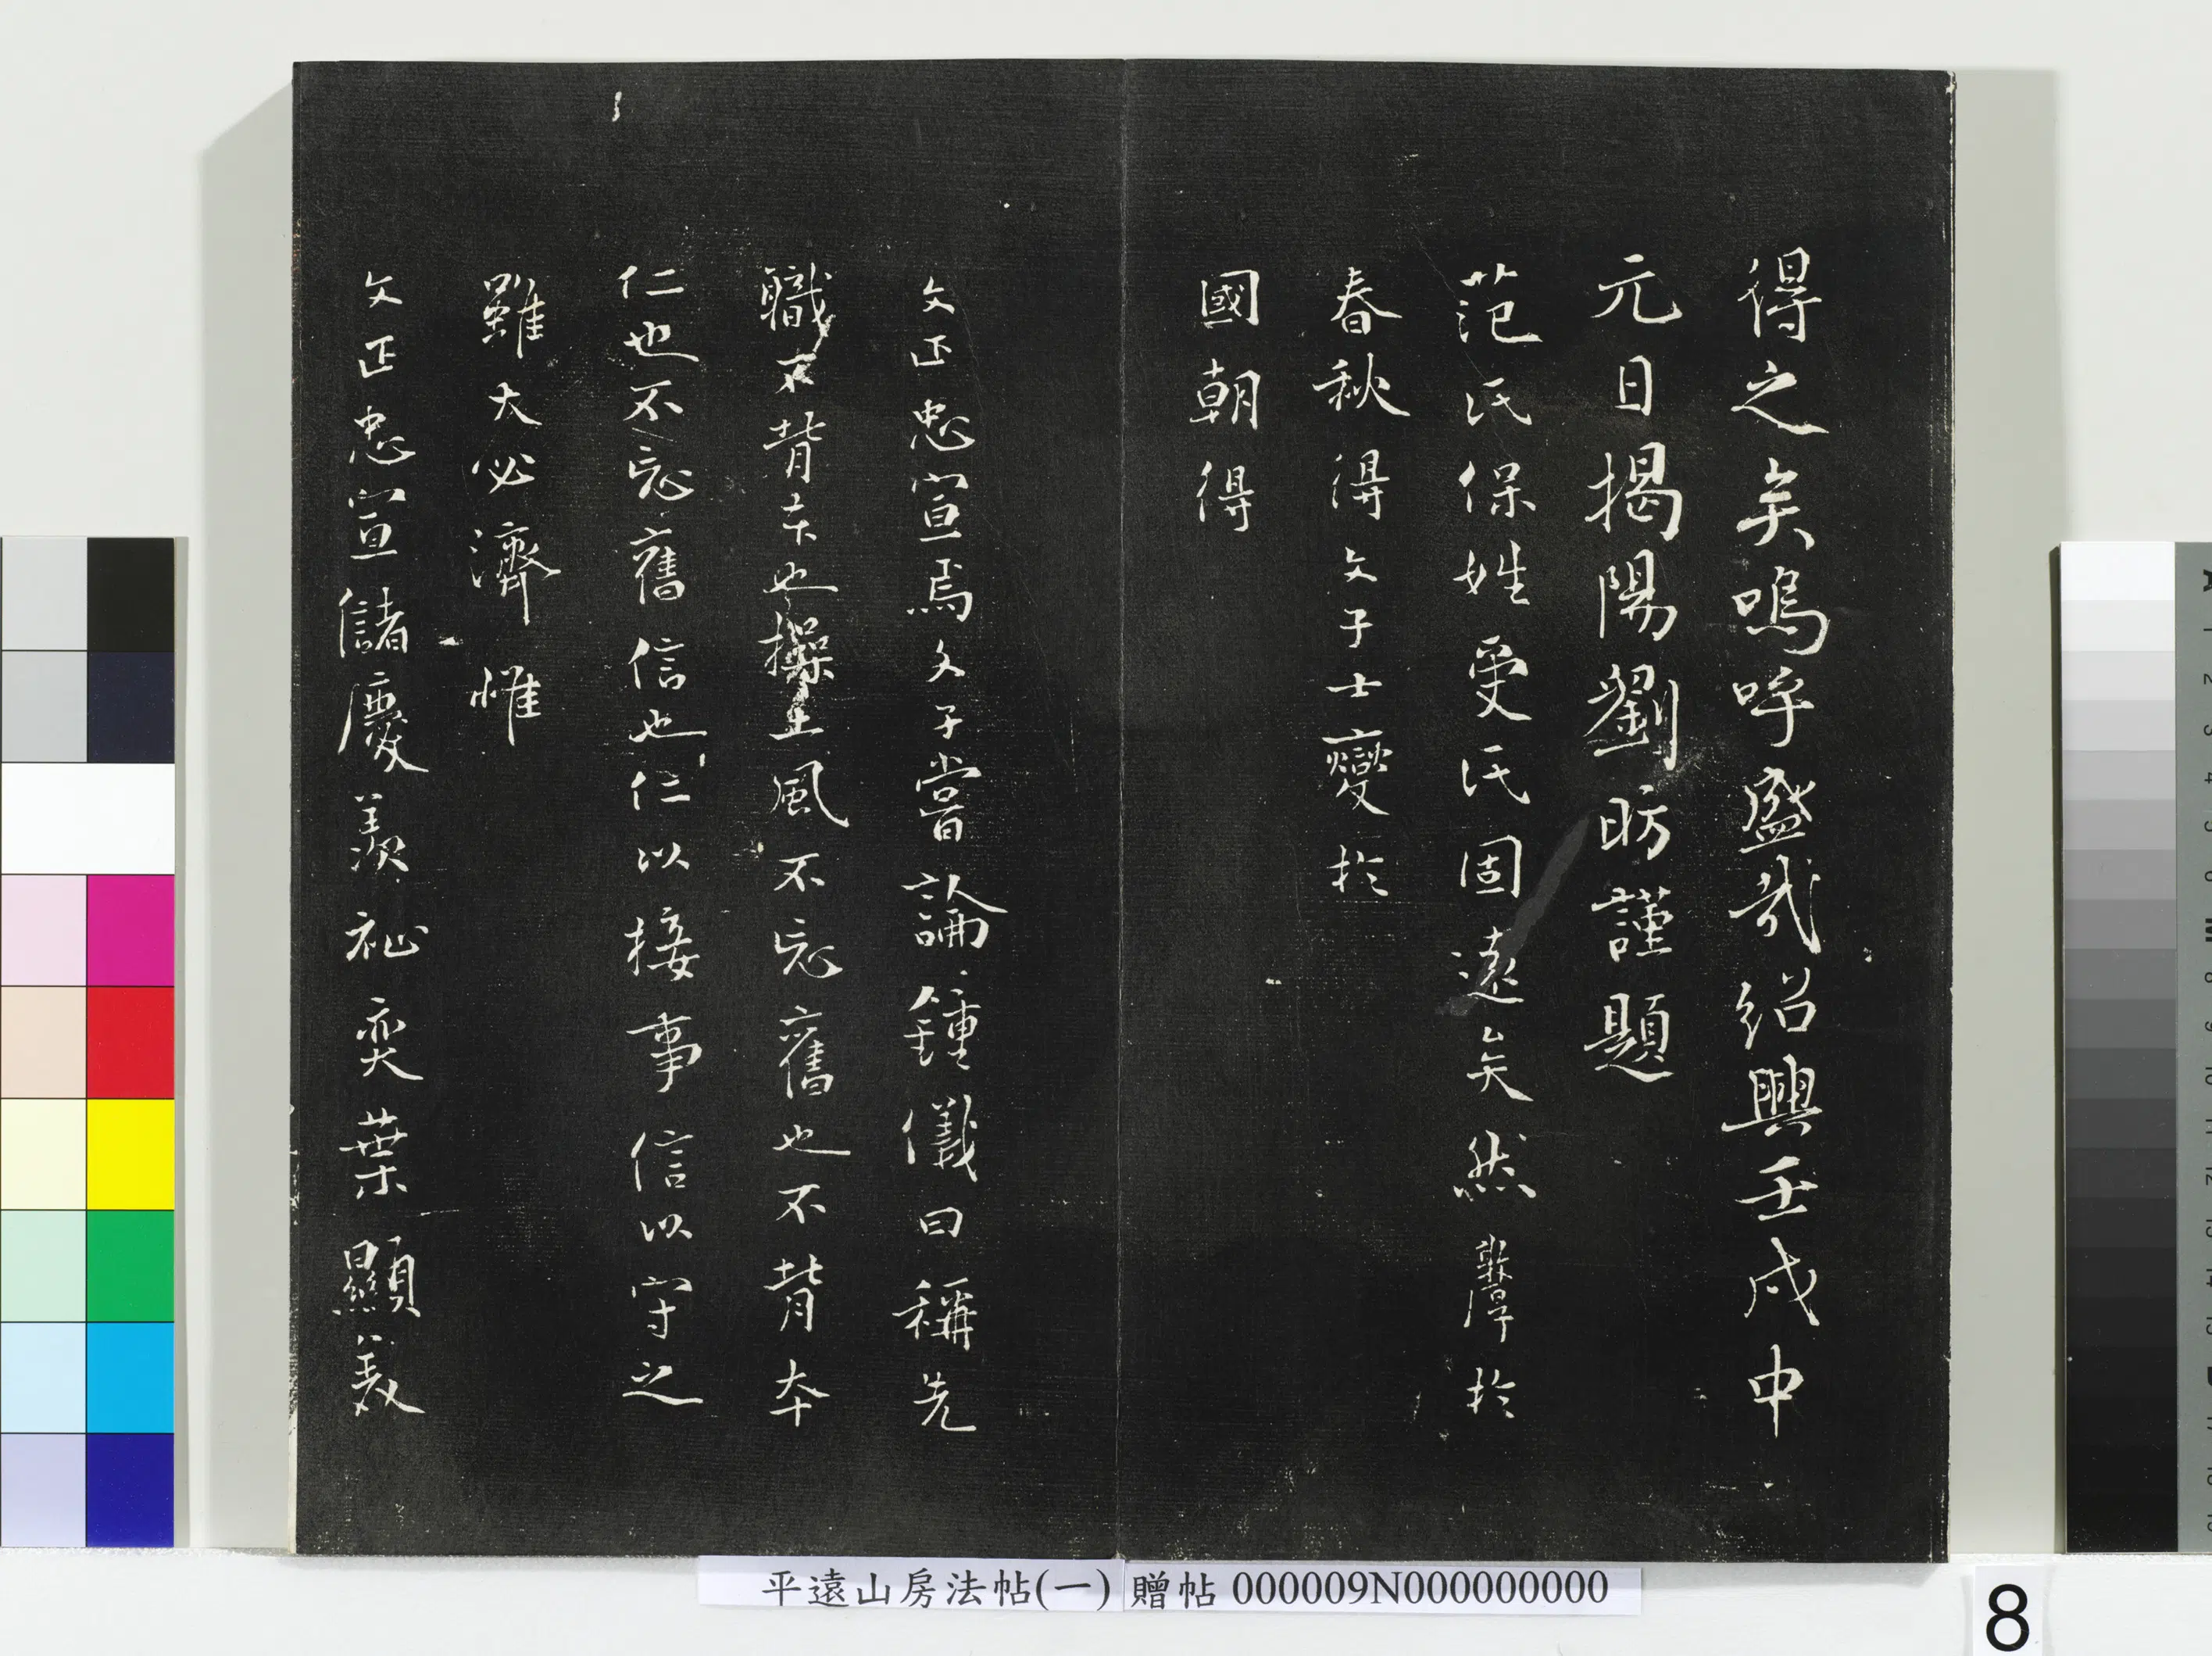 得之矣嗚呼盛哉紹興壬戌中
元日揭陽劉昉謹題
范氏保姓受氏固遠矣然斆厚於
春秋得文子士變於
國朝得
文正忠宣焉文子嘗論鍾儀曰稱先
職不背本也操土風不忘舊也不背本
仁也不忘舊信也仁以接事信以守之
雖大必濟惟
文正忠宣儲慶羨祉奕葉顯義
平遠山房法帖(一) 贈帖 000009N000000000
8